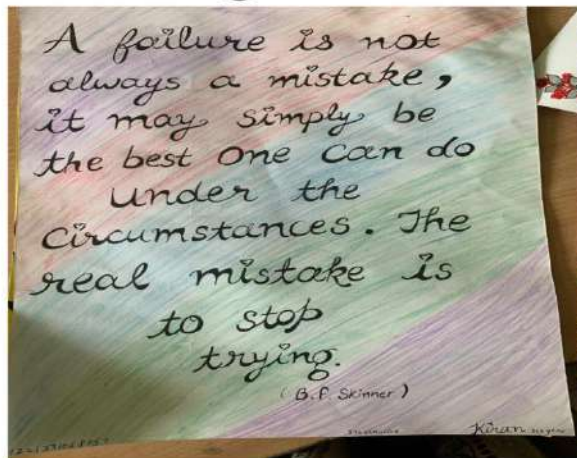 A failure is not
always a mistake,
it may simply be
the best one can do
under the
circumstances. The
real mistake is
to stop
trying.
(B.F. Skinner)
Kiran